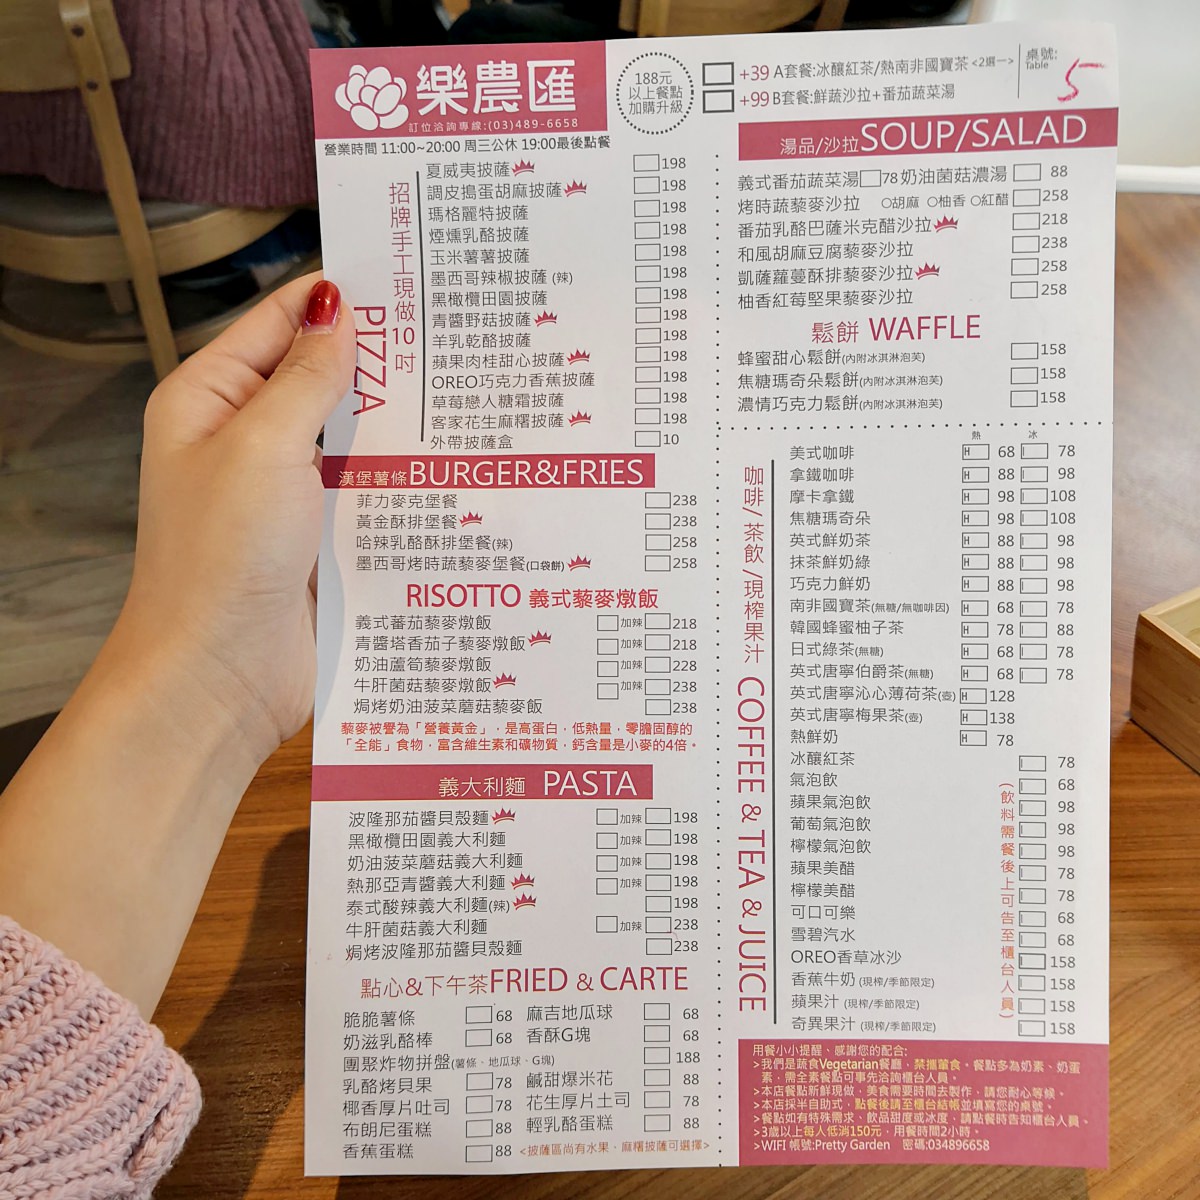 樂農匯
訂位洽詢專線:(03)489-6658
營業時間 11:00~20:00 周三公休 19:00最後點餐
188元
以上餐點
加購升級
+39 A套餐:冰釀紅茶/熱南非國寶茶 <2選一>
+99 B套餐:鮮蔬沙拉+番茄蔬菜湯
桌號:
Table
5
招牌手工現做10吋
PIZZA
夏威夷披薩 198
調皮搗蛋胡麻披薩 198
瑪格麗特披薩 198
煙燻乳酪披薩 198
玉米薯薯披薩 198
墨西哥辣椒披薩 (辣) 198
黑橄欖田園披薩 198
青醬野菇披薩 198
羊乳乾酪披薩 198
蘋果肉桂甜心披薩 198
OREO巧克力香蕉披薩 198
草莓戀人糖霜披薩 198
客家花生麻糬披薩 198
外帶披薩盒 10
漢堡薯條BURGER&FRIES
菲力麥克堡餐 238
黃金酥排堡餐 238
哈辣乳酪酥排堡餐(辣) 258
墨西哥烤時蔬藜麥堡餐(口袋餅) 258
RISOTTO 義式藜麥燉飯
義式蕃茄藜麥燉飯 加辣 218
青醬塔香茄子藜麥燉飯 加辣 218
奶油蘆筍藜麥燉飯 加辣 228
牛肝菌菇藜麥燉飯 加辣 238
焗烤奶油菠菜蘑菇藜麥飯 238
藜麥被譽為「營養黃金」,是高蛋白,低熱量,零膽固醇的
「全能」食物,富含維生素和礦物質,鈣含量是小麥的4倍。
義大利麵 PASTA
波隆那茄醬貝殼麵 加辣 198
黑橄欖田園義大利麵 加辣 198
奶油菠菜蘑菇義大利麵 加辣 198
熱那亞青醬義大利麵 加辣 198
泰式酸辣義大利麵(辣) 198
牛肝菌菇義大利麵 加辣 238
焗烤波隆那茄醬貝殼麵 238
點心&下午茶FRIED & CARTE
脆脆薯條 68 麻吉地瓜球 68
奶滋乳酪棒 68 香酥G塊 68
團聚炸物拼盤(薯條、地瓜球、G塊) 188
乳酪烤貝果 78 鹹甜爆米花 88
椰香厚片吐司 78 花生厚片土司 78
布朗尼蛋糕 88 輕乳酪蛋糕 88
香蕉蛋糕 88 <披薩區尚有水果、麻糬披薩可選擇>
湯品/沙拉SOUP/SALAD
義式番茄蔬菜湯 78 奶油菌菇濃湯 88
烤時蔬藜麥沙拉 ○胡麻 ○柚香 ○紅醋 258
番茄乳酪巴薩米克醋沙拉 218
和風胡麻豆腐藜麥沙拉 238
凱薩蘿蔓酥排藜麥沙拉 258
柚香紅莓堅果藜麥沙拉 258
鬆餅 WAFFLE
蜂蜜甜心鬆餅(內附冰淇淋泡芙) 158
焦糖瑪奇朵鬆餅(內附冰淇淋泡芙) 158
濃情巧克力鬆餅(內附冰淇淋泡芙) 158
咖啡/茶飲/現榨果汁 COFFEE & TEA & JUICE
熱 冰
美式咖啡 H 68 I 78
拿鐵咖啡 H 88 I 98
摩卡拿鐵 H 98 I 108
焦糖瑪奇朵 H 98 I 108
英式鮮奶茶 H 88 I 98
抹茶鮮奶綠 H 88 I 98
巧克力鮮奶 H 88 I 98
南非國寶茶(無糖/無咖啡因) H 68 I 78
韓國蜂蜜柚子茶 H 78 I 88
日式綠茶(無糖) H 68 I 78
英式唐寧伯爵茶(無糖) H 68 I 78
英式唐寧沁心薄荷茶(壺) H 128
英式唐寧梅果茶(壺) H 138
熱鮮奶 H 78
冰釀紅茶 I 78
氣泡飲 I 68
蘋果氣泡飲 I 98
葡萄氣泡飲 I 98
檸檬氣泡飲 I 98
蘋果美醋 I 78
檸檬美醋 I 78
可口可樂 I 68
雪碧汽水 I 68
OREO香草冰沙 I 158
香蕉牛奶 (現榨/季節限定) I 158
蘋果汁 (現榨/季節限定) I 158
奇異果汁 (現榨/季節限定) I 158
(飲料需餐後上可告至櫃台人員)
用餐小小提醒、感謝您的配合:
>我們是蔬食Vegetarian餐廳,禁攜葷食。餐點多為奶素、奶蛋
素,需全素餐點可事先洽詢櫃台人員。
>本店餐點新鮮現做,美食需要時間去製作,請您耐心等候。
>本店採半自助式,點餐後請至櫃台結帳並填寫您的桌號。
>餐點如有特殊需求、飲品甜度或冰度,請點餐時告知櫃台人員。
>3歲以上每人低消150元,用餐時間2小時。
>WIFI 帳號:Pretty Garden 密碼:034896658